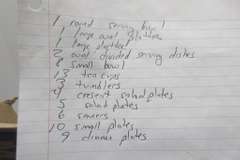 1 round serving bowl
1 large oval platter
1 large platter
2 oval divided serving dishes
8 small bowl
13 tea cups
3 tumblers
4 cresent salad plates
5 salad plates
6 saucers
10 small plates
9 dinner plates